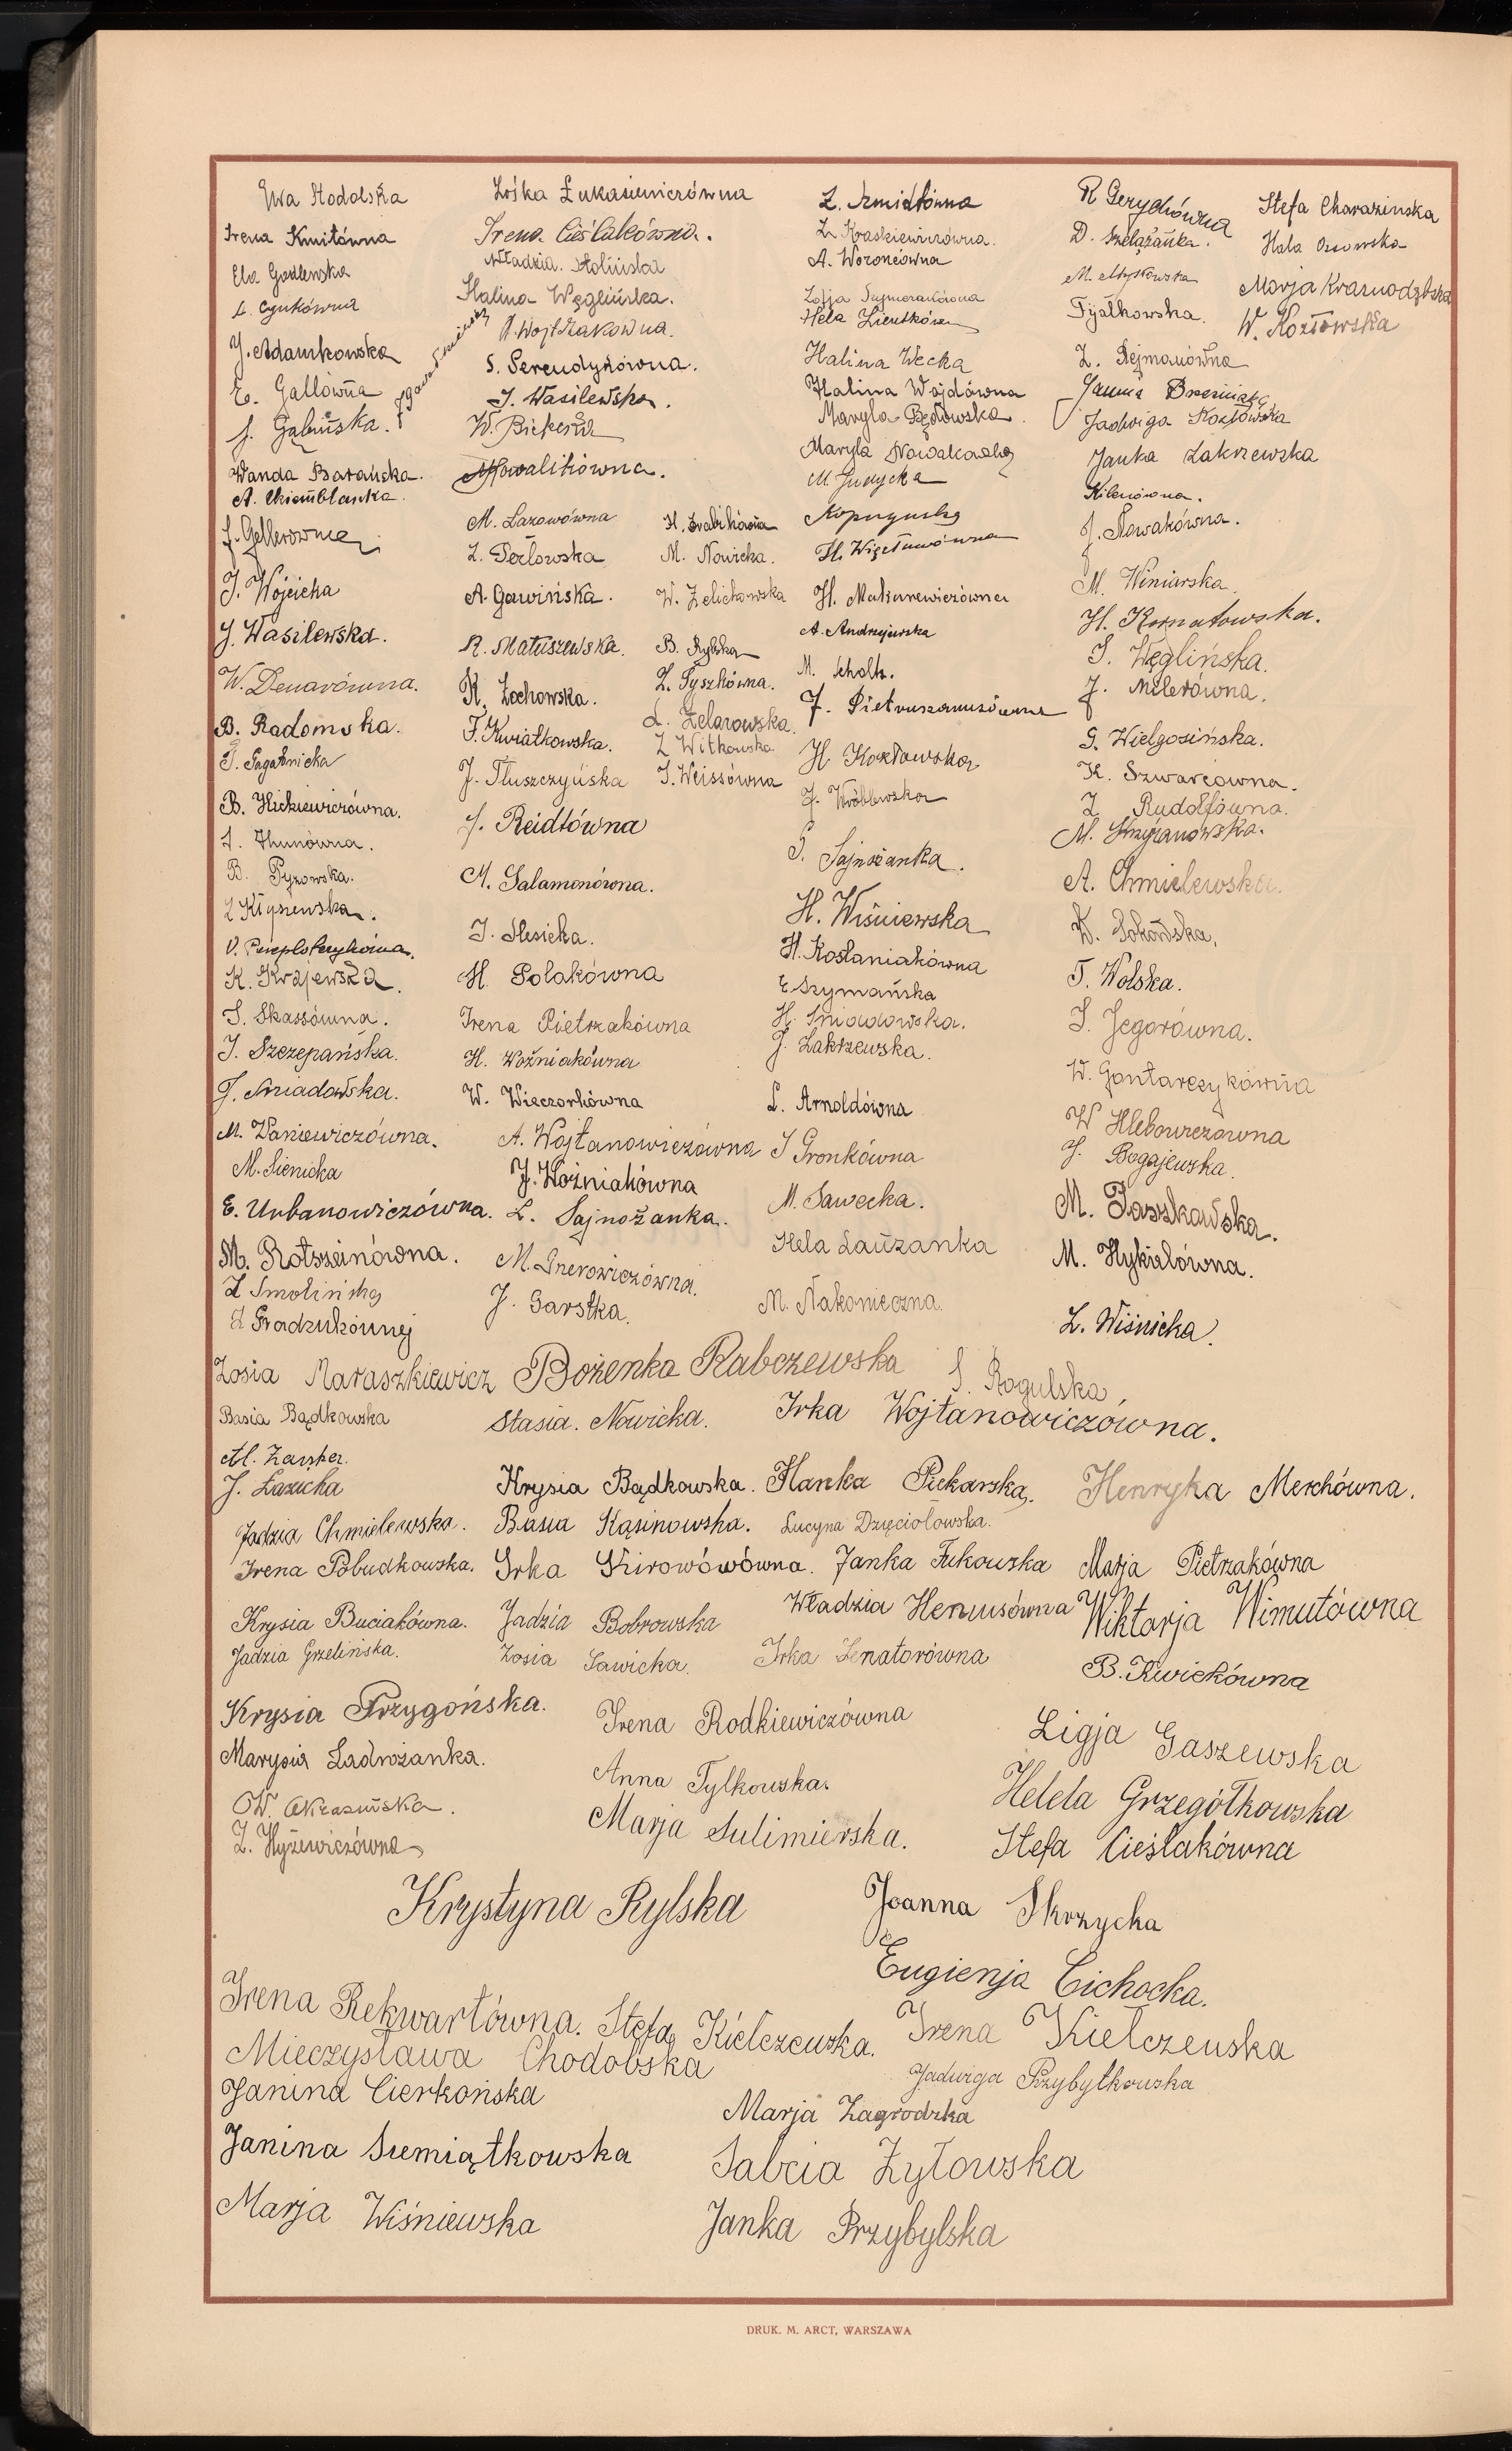 Ewa Stodolska
Irena Kmitówna
Ela Godlewska
J. Adamkowska
E. Gallówna
J. Gąbińska.
Wanda Barańska.
J. Gellerówna
J. Wójcicka
J. Wasilewska.
W. Denarówna.
B. Radomska.
B. Hickiewiczówna.
B. Pyzowska.
K. Krajewska.
S. Skassówna.
J. Szczepańska.
J. Śniadowska.
M. Waniewiczówna.
M. Sienicka
E. Urbanowiczówna.
M. Rotszeinówna.
Z Smolińska
Zośka Łukasiewiczówna
Irena Cieślakówna.
Władzia. Stolińska
Halina Węglińska.
A. Wojtczakówna.
S. Serendyżówna.
J. Wasilewska.
M. Kowalikówna.
M. Łazowówna
Z. Perłowska
A. Gawińska.
R. Matuszewska.
K. Żochowska.
F. Kwiatkowska.
J. Tłuszczyńska
J. Reidlówna
M. Salamonówna.
J. Slesicka.
H. Polakówna
Irena Pietrzakówna
H. Woźniakówna
W. Wieczorkówna
A. Wojtanowiczówna
J. Woźniakówna
L. Sajnożanka.
J. Garstka.
H. Grabikówna
M. Nowicka.
W. Zelichowska
B. Rylska
Z. Tyszkówna.
L. Żelazowska.
Z Witkowska
J. Weissówna
Z. Szmidtówna
Z. Kraskiewiczówna.
A. Woroncówna
Hela Zientkówna
Halina Wecka
Halina Wojdówna
Maryla Będowska.
Maryla Nowakowska
M. Judycka
H. Więcławówna
H. Makarewiczówna
A. Andrzejewska
M. Scholtz.
J. Pietruszanusówna
H. Kozłowska
J. Wróblewska
S. Sajnożanka.
H. Wiśniewska
H. Kostaniakówna
E. Szymańska
H. Śniadowska.
J. Zakrzewska.
L. Arnoldówna
J Gronkówna
M. Sawecka.
Hela Lauzanka
M. Nakonieczna.
R Gerychówna
D. Szelążanka.
M. Myszkowska
Fijałkowska.
Z. Rejmanówna
Jadwiga Kozłowska
Janka Zakrzewska
J. Nowakówna.
M. Winiarska.
H. Kornatowska.
S. Węglińska.
J. Milerówna.
G. Wielgosińska.
K. Szwarcówna.
Z Rudolfówna.
M. Chrzanowska.
A. Chmielewska.
W. Sokólska.
T. Wolska.
S. Jegorówna.
W. Gontarczykówna
W Hlebowiczówna
J. Bogajewska.
M. Paszkowska.
M. Hykielówna.
L. Wiśnicka.
Stefa Charazinska
Hala Ossowska
Marja Krasnodębska
W. Kozłowska
Zosia Maraszkiewicz Bożenka Rabczewska S. Rogulska,
Basia Bądkowska Stasia. Nowicka. Irka Wojtanowiczówna.
J. Łazicka
Krysia Bądkowska. Hanka Piekarska. Henryka Merchówna.
Jadzia Chmielewska. Basia Kąsinowska. Lucyna Dzięciołowska.
Irena Pobudkowska. Irka Skirowówówna. Janka Fukowska Marja Pietrzakówna
Krysia Buciakówna. Jadzia Bobrowska Władzia Henusówna Wiktorja Wimutówna
Jadzia Grzelińska. Zosia Sawicka. Irka Senatorówna B. Kwiekówna
Krysia Przygońska. Irena Rodkiewiczówna Ligja Gaszewska
Marysia Zadrożanka. Anna Tylkowska. Helela Grzegółkowska
W. Okrasińska. Marja Sulimierska. Stefa Cieślakówna
Z. Hyżewiczówna
Krystyna Rylska Joanna Skrzycka
Eugienja Cichocka.
Irena Rekwartówna. Stefa Kiełczewska. Irena Kiełczewska
Mieczysława Chodolska Jadwiga Przybytkowska
Janina Cierkońska Marja Zagrodzka
Janina Siemiątkowska Sabcia Żyłowska
Marja Wiśniewska Janka Przybylska
DRUK. M. ARCT, WARSZAWA